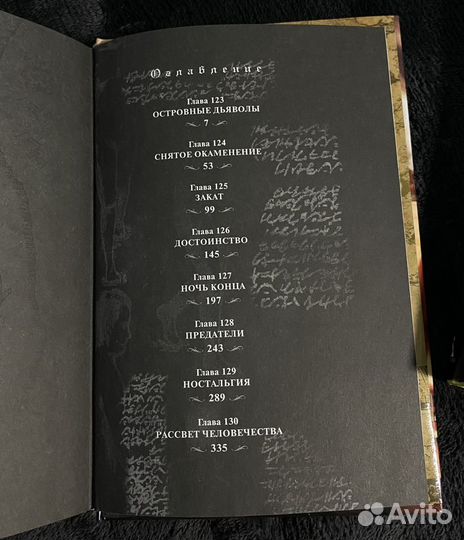 Оглавление
Глава 123
ОСТРОВНЫЕ ДЬЯВОЛЫ
7
Глава 124
СНЯТОЕ ОКАМЕНЕНИЕ
53
Глава 125
ЗАКАТ
99
Глава 126
ДОСТОИНСТВО
145
Глава 127
НОЧЬ КОНЦА
197
Глава 128
ПРЕДАТЕЛИ
243
Глава 129
НОСТАЛЬГИЯ
289
Глава 130
РАССВЕТ ЧЕЛОВЕЧЕСТВА
335
Avito